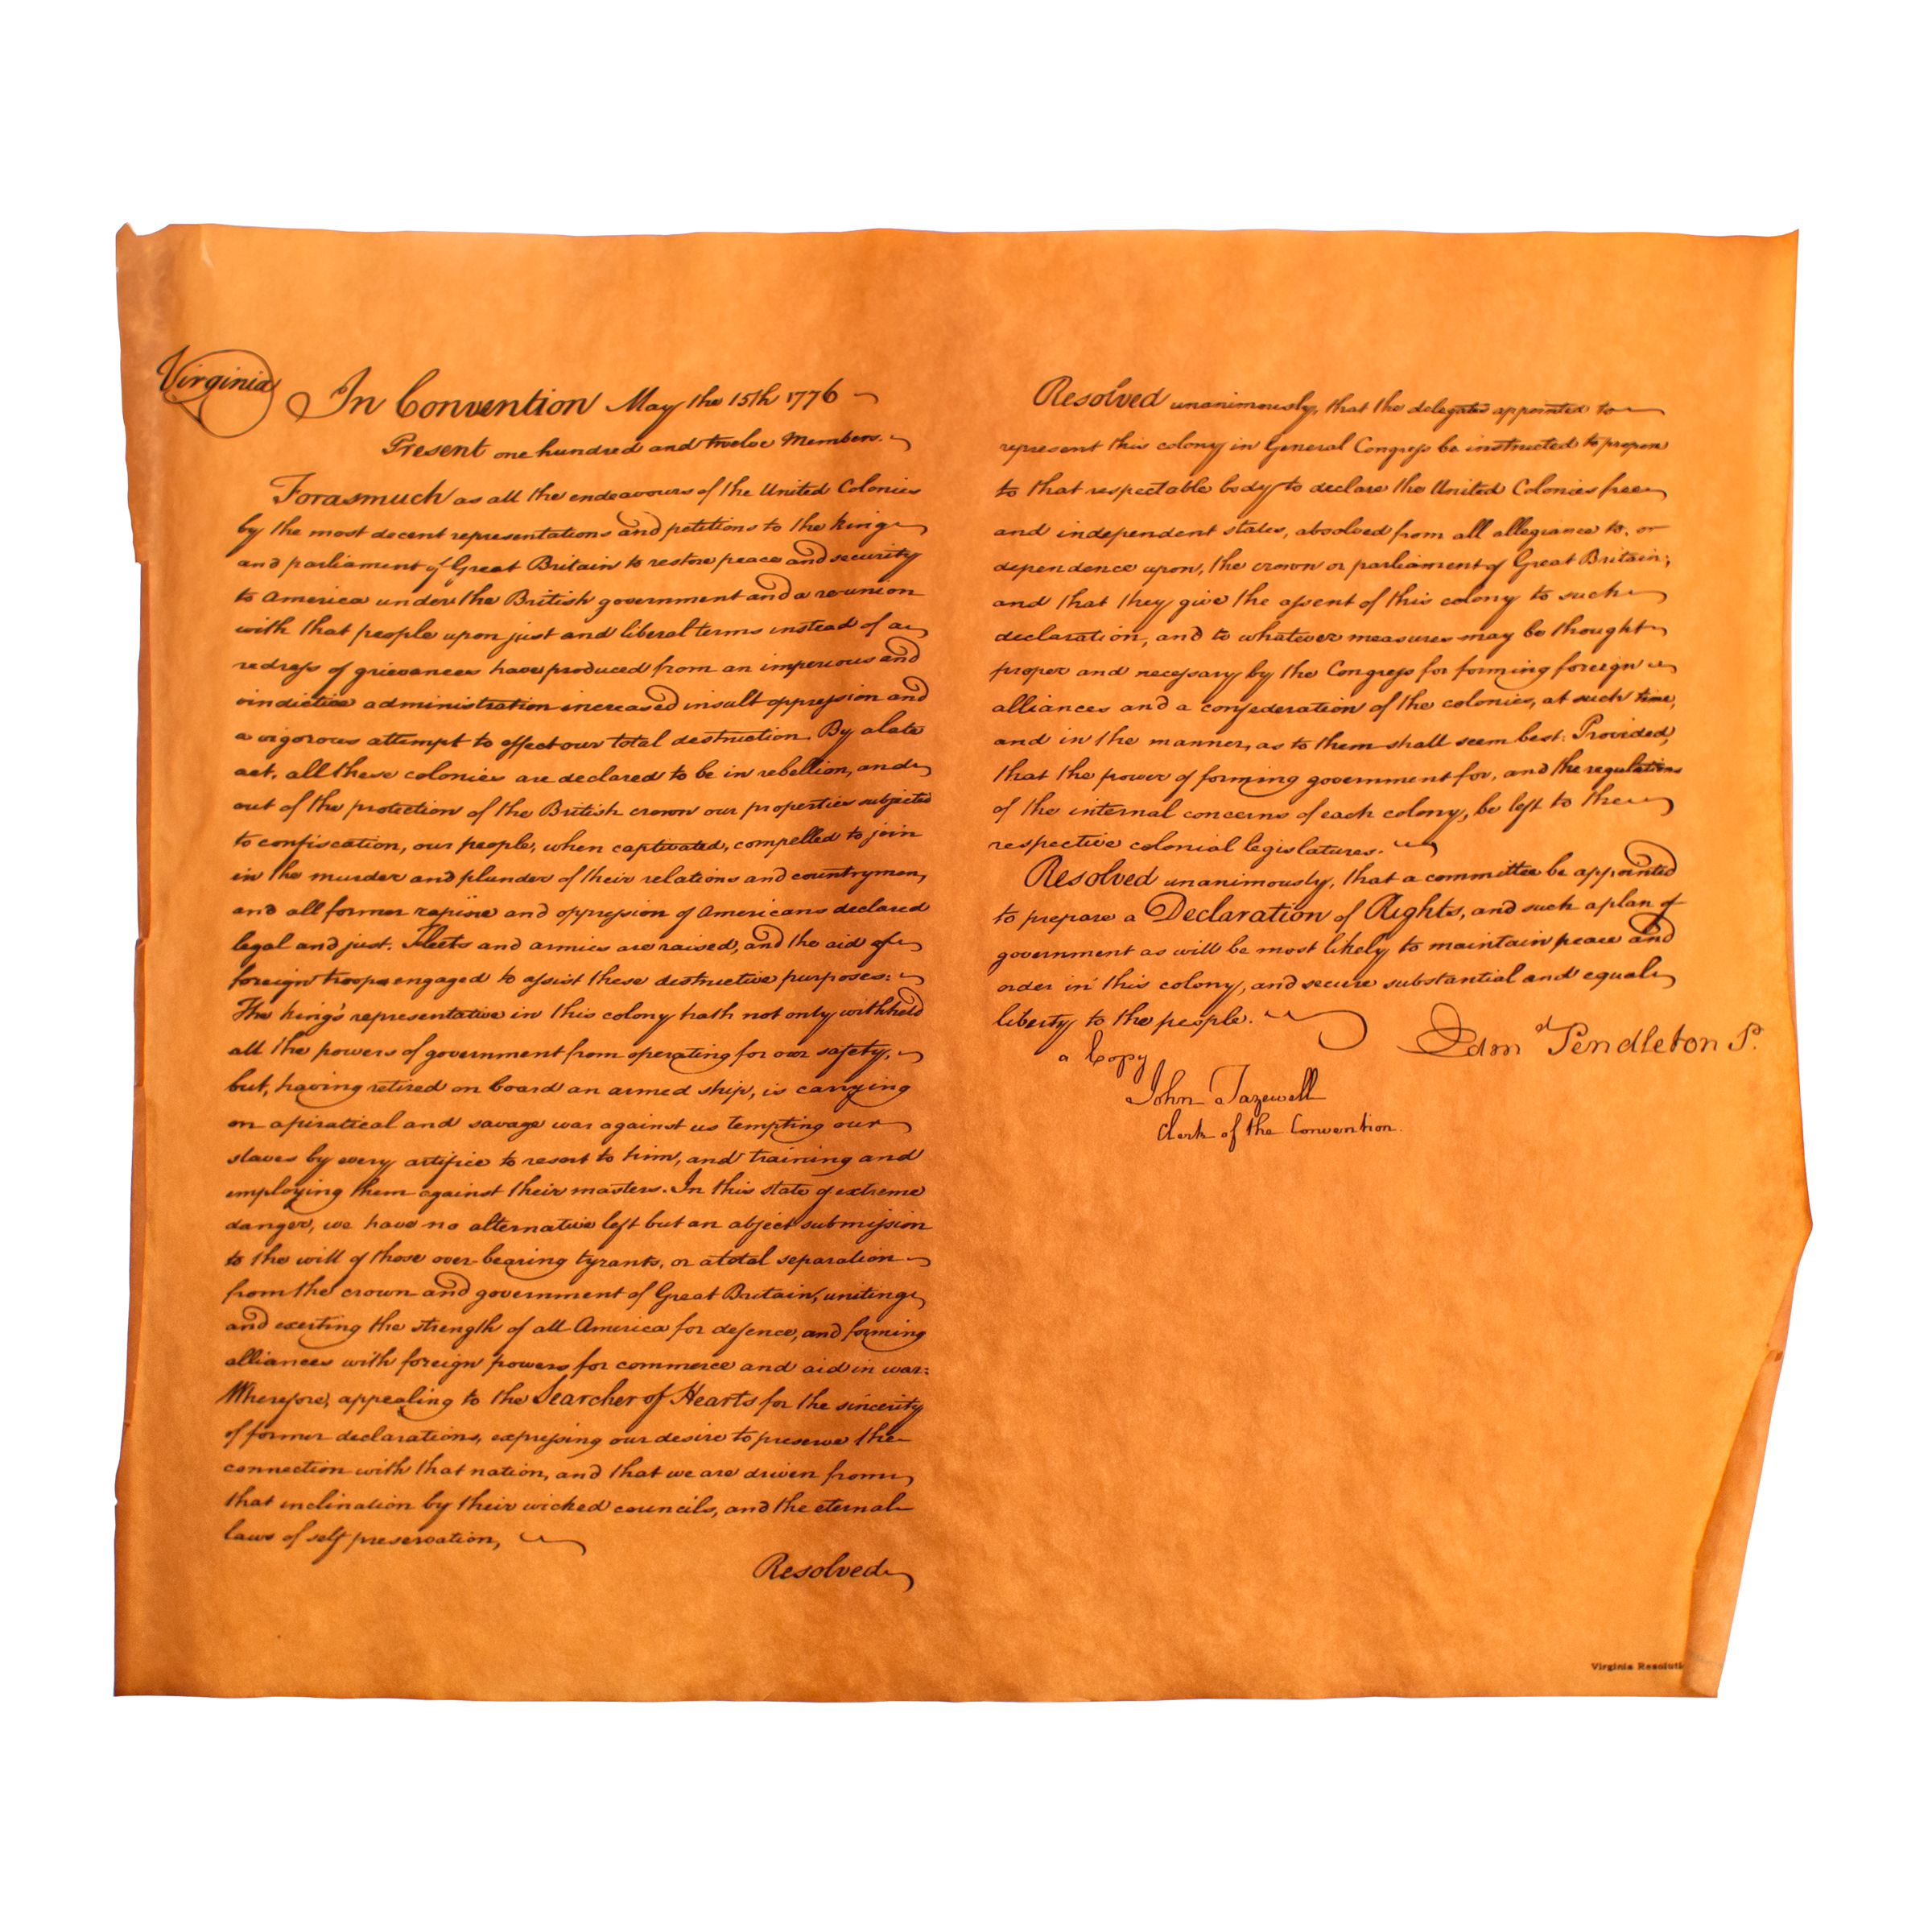 Virginia
In Convention May the 15th 1776
Present one hundred and twelve Members.
Forasmuch as all the endeavours of the United Colonies
by the most decent representations and petitions to the king
and parliament of Great Britain to restore peace and security
to America under the British government and a reunion
with that people upon just and liberal terms instead of a
redress of grievances have produced from an imperious and
vindictive administration increased insult oppression and
a vigorous attempt to effect our total destruction. By a late
act, all these colonies are declared to be in rebellion, and
out of the protection of the British crown our properties subjected
to confiscation, our people, when captivated, compelled to join
in the murder and plunder of their relations and countrymen,
and all former rapine and oppression of Americans declared
legal and just. Fleets and armies are raised, and the aid of
foreign troops engaged to assist these destructive purposes:
The king's representative in this colony hath not only withheld
all the powers of government from operating for our safety,
but, having retired on board an armed ship, is carrying
on a piratical and savage war against us tempting our
slaves by every artifice to resort to him, and training and
employing them against their masters. In this state of extreme
danger, we have no alternative left but an abject submission
to the will of those over-bearing tyrants, or a total separation
from the crown and government of Great Britain, uniting
and exerting the strength of all America for defence, and forming
alliances with foreign powers for commerce and aid in war:
Wherefore, appealing to the Searcher of Hearts for the sincerity
of former declarations, expressing our desire to preserve the
connection with that nation, and that we are driven from
that inclination by their wicked councils, and the eternal
laws of self preservation,
Resolved
Resolved unanimously, that the delegates appointed to
represent this colony in General Congress be instructed to propose
to that respectable body to declare the United Colonies free
and independent states, absolved from all allegiance to, or
dependence upon, the crown or parliament of Great Britain;
and that they give the assent of this colony to such
declaration, and to whatever measures may be thought
proper and necessary by the Congress for forming foreign
alliances and a confederation of the colonies, at such time,
and in the manner, as to them shall seem best: Provided,
that the power of forming government for, and the regulations
of the internal concerns of each colony, be left to the
respective colonial legislatures.
Resolved unanimously, that a committee be appointed
to prepare a Declaration of Rights, and such a plan of
government as will be most likely to maintain peace and
order in this colony, and secure substantial and equal
liberty to the people.
Edmd Pendleton P.
a Copy
John Tazewell
Clerk of the Convention.
Virginia Resoluti